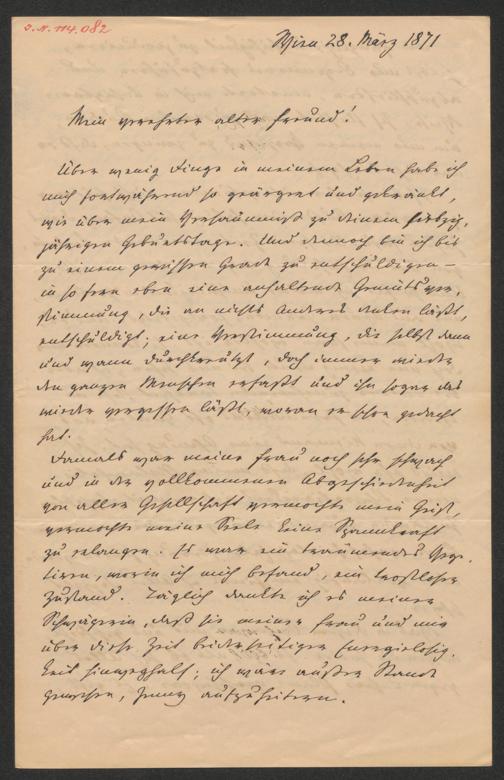 J. N. 114.082
Wien 28. März 1871
Mein verehrter alter Freund!
Über wenig Dinge in meinem Leben habe ich
mich fortwährend so geärgert und gekränkt,
wie über mein Versäumniß zu deinem siebzig-
jährigen Geburtstage. Und dennoch bin ich bis
zu einem gewissen Grade zu entschuldigen –
in so fern eben eine anhaltende Gemütsver-
stimmung, die an nichts Anderes denken läßt,
entschuldigt; eine Verstimmung, die selbst dann
und wann durchkreutzt, doch immer wieder
den ganzen Menschen erfaßt und ihn sogar das
wieder vergessen läßt, woran er schon gedacht
hat.
Damals war meine Frau noch sehr schwach
und in der vollkommenen Abgeschiedenheit
von aller Gesellschaft vermochte mein Geist,
vermochte meine Seele keine Spannkraft
zu erlangen. Es war ein träumendes Vege-
tiren, worin ich mich befand, ein trostloser
Zustand. Täglich dankte ich es meiner
Schwägerin, daß sie meiner Frau und mir
über diese Zeit beiderseitiger Energielosig-
keit hinweghalf; ich wäre außer Stande
gewesen, Jenny aufzuheitern.